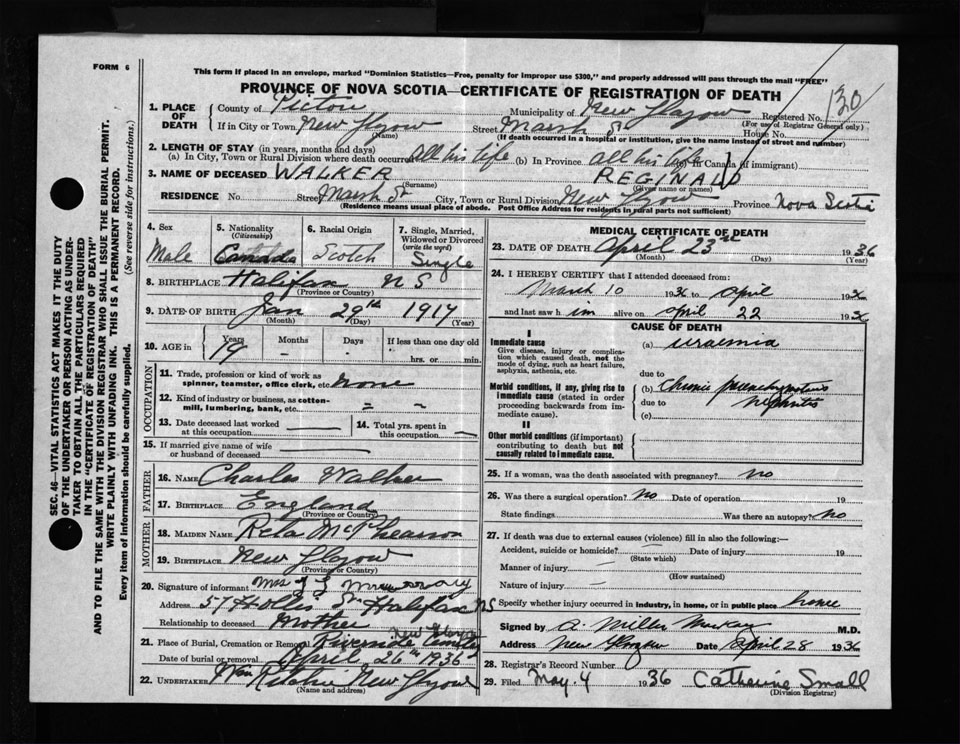 FORM 6
This form if placed in an envelope, marked "Dominion Statistics—Free, penalty for improper use $300," and properly addressed will pass through the mail "FREE"
PROVINCE OF NOVA SCOTIA—CERTIFICATE OF REGISTRATION OF DEATH
130
1. PLACE OF DEATH County of Pictou Municipality of New Glasgow Registered No.
(For use of Registrar General only)
If in City or Town New Glasgow Street Marsh St House No.
(Name) (If death occurred in a hospital or institution, give the name instead of street and number)
2. LENGTH OF STAY (in years, months and days)
(a) In City, Town or Rural Division where death occurred all his life (b) In Province all his life (c) In Canada (if immigrant)
3. NAME OF DECEASED WALKER REGINALD
(Surname) (Given name or names)
RESIDENCE No Street Marsh St City, Town or Rural Division New Glasgow Province Nova Scotia
(Residence means usual place of abode. Post Office Address for residents in rural parts not sufficient)
4. Sex Male
5. Nationality (Citizenship) Canada
6. Racial Origin Scotch
7. Single, Married, Widowed or Divorced (write the word) Single
8. BIRTHPLACE Halifax N S
(Province or Country)
9. DATE OF BIRTH Jan 29th 1917
(Month) (Day) (Year)
10. AGE in Years Months Days If less than one day old
19 - - hrs. or min.
OCCUPATION
11. Trade, profession or kind of work as spinner, teamster, office clerk, etc. None
12. Kind of industry or business, as cotton-mill, lumbering, bank, etc.
13. Date deceased last worked at this occupation
14. Total yrs. spent in this occupation
15. If married give name of wife or husband of deceased
FATHER
16. NAME Charles Walker
17. BIRTHPLACE England
(Province or Country)
MOTHER
18. MAIDEN NAME Rita McPhearson
19. BIRTHPLACE New Glasgow
(Province or Country)
20. Signature of informant Mrs
Address 57 Hollis St Halifax NS
Relationship to deceased Mother
21. Place of Burial, Cremation or Removal Riverside Cemty New Glasgow
Date of burial or removal April 26th 1936
22. UNDERTAKER Wm Ritchie New Glasgow
(Name and address)
MEDICAL CERTIFICATE OF DEATH
23. DATE OF DEATH April 23rd 1936
(Month) (Day) (Year)
24. I HEREBY CERTIFY that I attended deceased from:
March 10 1936 to April 1936
and last saw him alive on april 22 1936
CAUSE OF DEATH
I
Immediate cause (a) uraemia
Give disease, injury or complication which caused death, not the mode of dying, such as heart failure, asphyxia, asthenia, etc.
due to
Morbid conditions, if any, giving rise to immediate cause (stated in order proceeding backwards from immediate cause).
(b) Chronic parenchymatous
due to nephritis
(c)
II
Other morbid conditions (if important) contributing to death but not causally related to immediate cause.
25. If a woman, was the death associated with pregnancy? no
26. Was there a surgical operation? No Date of operation 19
State findings Was there an autopsy? no
27. If death was due to external causes (violence) fill in also the following:—
Accident, suicide or homicide? Date of injury 19
(State which)
Manner of injury
(How sustained)
Nature of injury
Specify whether injury occurred in industry, in home, or in public place home
Signed by A. Miller MacKay M.D.
Address New Glasgow Date April 28 1936
28. Registrar's Record Number
29. Filed May. 4 1936 Catherine Small
(Division Registrar)
SEC. 46—VITAL STATISTICS ACT MAKES IT THE DUTY
OF THE UNDERTAKER OR PERSON ACTING AS UNDER-
TAKER TO OBTAIN ALL THE PARTICULARS REQUIRED
IN THE "CERTIFICATE OF REGISTRATION OF DEATH"
AND TO FILE THE SAME WITH THE DIVISION REGISTRAR WHO SHALL ISSUE THE BURIAL PERMIT.
WRITE PLAINLY WITH UNFADING INK. THIS IS A PERMANENT RECORD.
Every item of information should be carefully supplied. (See reverse side for instructions.)